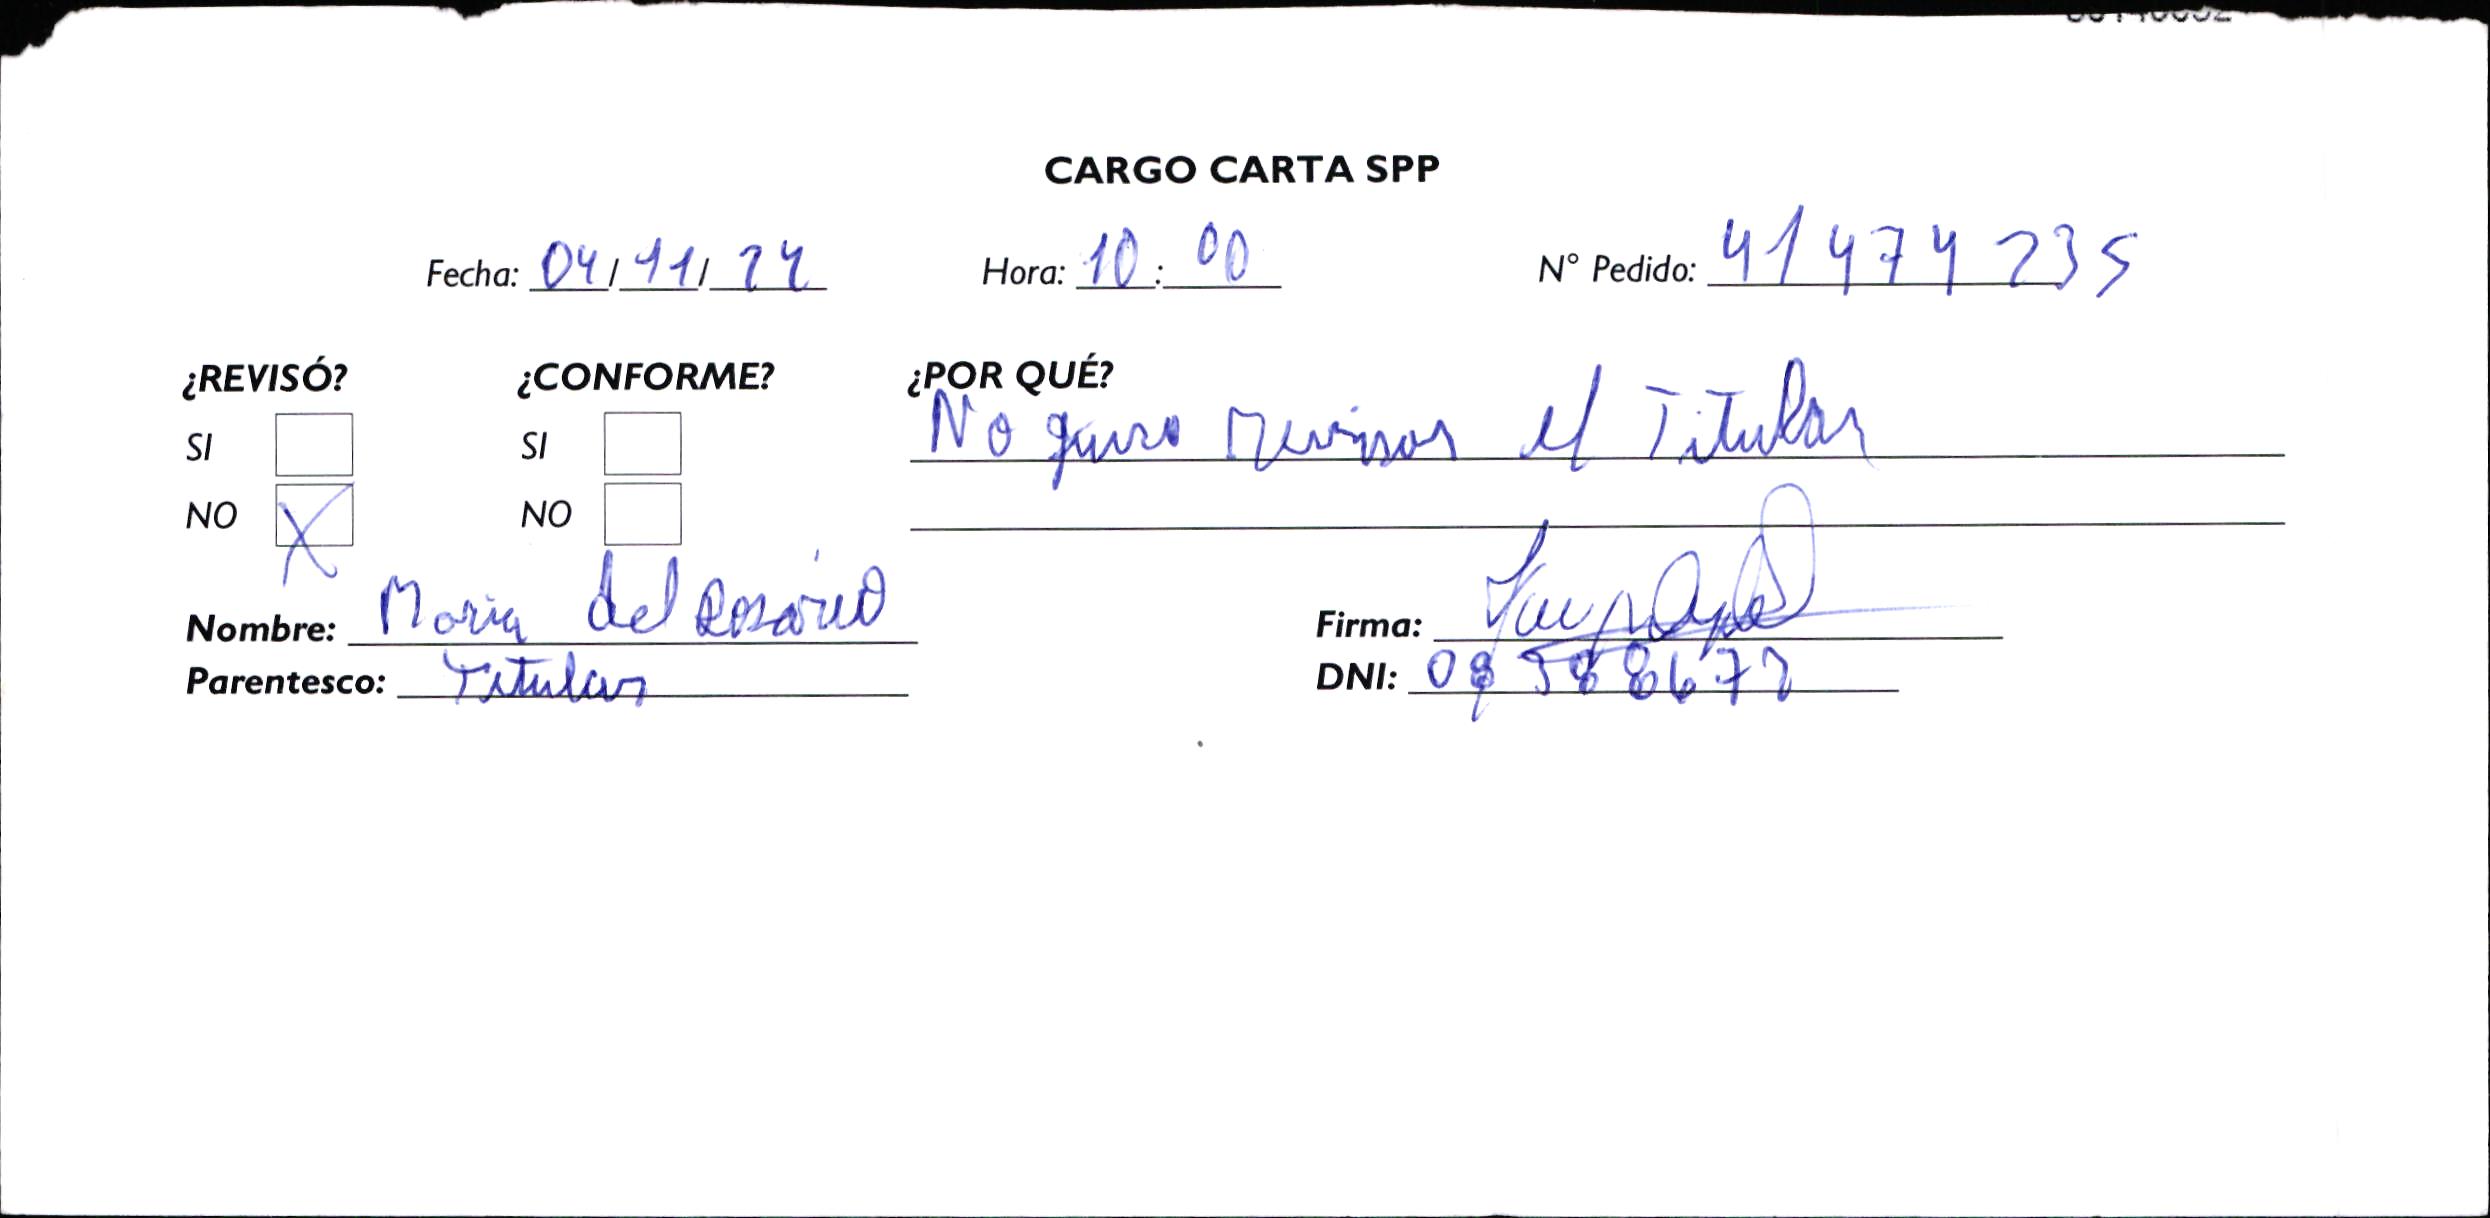 CARGO CARTA SPP
Fecha: 04/11/24 Hora: 10:00 N° Pedido: 41474235
¿REVISÓ? ¿CONFORME? ¿POR QUÉ?
SI SI No quiso revisar el Titular
NO X NO
Nombre: Maria del Rosario Firma:
Parentesco: Titular DNI: